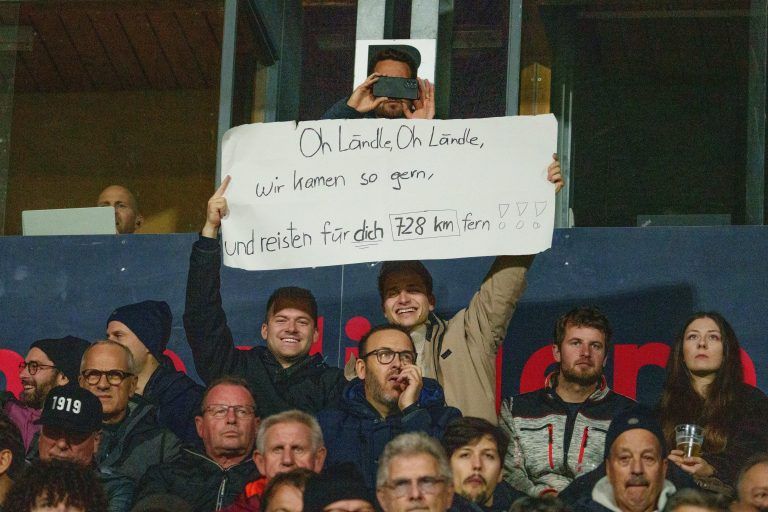 Oh Ländle, Oh Ländle,
wir kamen so gern,
und reisten für dich 728 km fern !!!
1919